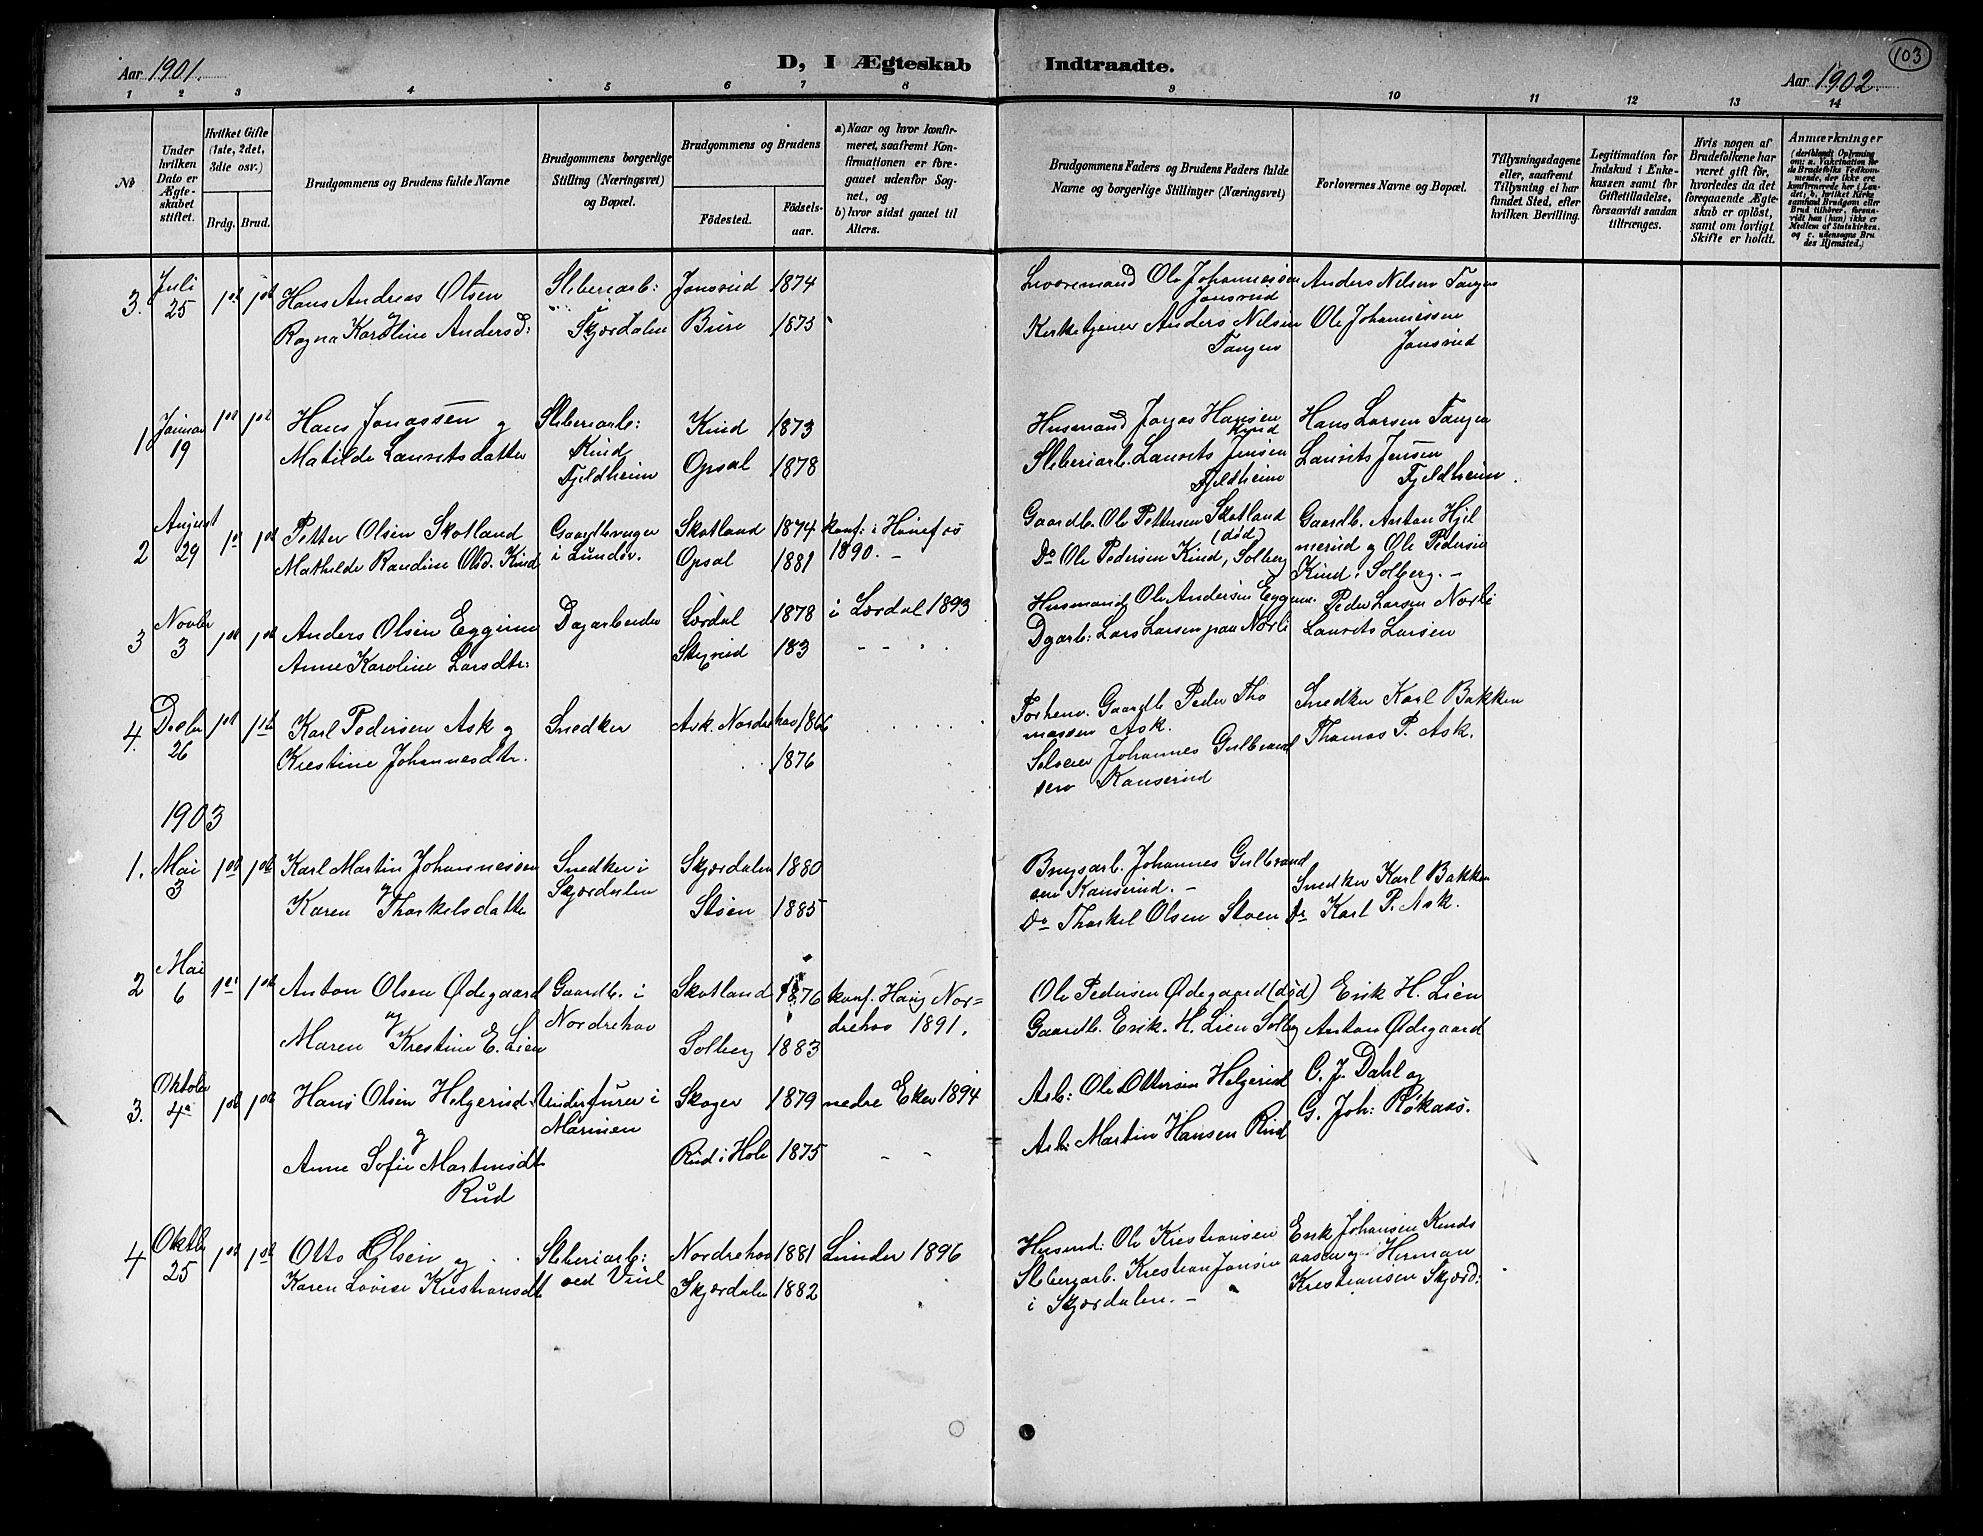 Aar 1901.
D, I Ægteskab Indtraadte.
103
Aar 1902.
1 2 3 4 5 6 7 8 9 10 11 12 13 14
No
Under hvilken Dato er Ægteskabet stiftet.
Hvilket Gifte (1ste, 2det, 3die osv.)
Brdg. Brud.
Brudgommens og Brudens fulde Navne
Brudgommens borgerlige Stilling (Næringsvei) og Bopæl.
Brudgommens og Brudens
Födested.
Födselsaar.
a) Naar og hvor konfirmeret, saafremt Konfirmationen er foregaaet udenfor Sognet, og
b) hvor sidst gaaet til Alters.
Brudgommens Faders og Brudens Faders fulde Navne og borgerlige Stillinger (Næringsvei)
Forlovernes Navne og Bopæl.
Tillysningsdagene eller, saafremt Tillysning ei har fundet Sted, efter hvilken Bevilling.
Legitimation for Indskud i Enkekassen samt for Giftetilladelse, forsaavidt saadan tiltrænges.
Hvis nogen af Brudefolkene har været gift för, hvorledes da det foregaaende Ægteskab er oplöst, samt om lovligt Skifte er holdt.
Anmærkninger
(deriblandt Oplysning om: a. Vakcination for de Brudefolks Vedkommende, der ikke ere konfirmerede her i Landet; b. hvilket Kirkesamfund Brudgom eller Brud tilhörer, forsaavidt han (hun) ikke er Medlem af Statskirken, og c. udensogns Brudes Hjemsted.)
3. Juli 25 1ste 1ste Hans Andreas Olsen Sliberiarb: Jonsrud 1874 Ole Johannessen Jonsrud Anders Nilsen Tangen
og
Ragna Karoline Andersd: Skjærdalen Bure 1875 Kirketjener Anders Nilsen Tangen Ole Johannessen Jonsrud
1 Januar 19 1ste 1ste Hans Jonassen og Sliberiarb: Kind 1873 Husmand Jonas Hansen Kind Hans Larsen Tangen
Matilde Lauritsdatter Kind Fjeldheim Opsal 1878 Sliberiarb. Laurits Jensen Fjeldheim Laurits Jensen Fjeldheim.
2 August 29 1ste 1ste Petter Olsen Skotland Gaardbruger Skotland 1874 konf. i Hønefos Gaardb. Ole Pettersen Skotland (død) Gaardb. Anton Hjel
Mathilde Randine Olsd. Kind i Lunder. Opsal 1881 1890. – Do Ole Pedersen Kind, Solberg merud og Ole Pedersen
Kind i Solberg. –
3 Novbr 3 1ste 1ste Anders Olsen Eggum Dagarbeider Lærdal 1878 i Lærdal 1893 Husmand Ole Andersen Eggum. Peder Larsen Nørli
Anne Karoline Larsdtr: 183 Dgarb: Lars Larsen paa Nørli Laurits Larsen
4. Decbr 26 1ste 1ste Karl Pedersen Ask og Snedker Ask. Nordrehov 1866 Forhenv. Gaardb. Peder Tho Snedker Karl Bakken
massen Ask. Thomas P. Ask.
Kristine Johannesdtr. 1876 Johannes Gulbrand
sen Kanserud
1903
1. Mai 3 1ste 1ste Karl Martin Johannessen Snedker i Skjærdalen 1880 Brugsarb. Johannes Gulbrand
sen Kanserud. – Snedker Karl Bakken
og Skjærdalen
Karen Thorkelsdatter Støen 1885 Do Thorkel Olsen Støen Do Karl P. Ask.
2 Mai 6 1ste 1ste Anton Olsen Ødegaard Gaardb. i Skotland 1876 konf. Haug Nor= Ole Pedersen Ødegaard (død) Erik H. Lien
og Nordrehov drehov 1891.
Maren Kristine E. Lien Solberg 1883 Gaardb. Erik. H. Lien Solberg Anton Ødegaard
3. Oktober 4de 1ste 1ste Hans Olsen Helgerud i Skoger 1879 nedre Eker 1894 Arb: Ole Ottersen Helgerud C. J. Dahl og
og Marinen
Anne Sofie Martinsdt Rud Rud i Hole 1875 – – Arb: Martin Hansen Rud G. Joh: Røkaas.
4 Oktbr 25 1ste 1ste Otto Olsen og Sliberiarb: Nordrehov 1881 Lunder 1896 Husmd: Ole Kristiansen Erik Johansen Kinds
Karen Lovise Kristiansdt ved Viul Skjærdalen 1882 Sliberiarb. Kristian Jonsen aasen og Herman
i Skjærdalen. – Kristiansen Skjærd.